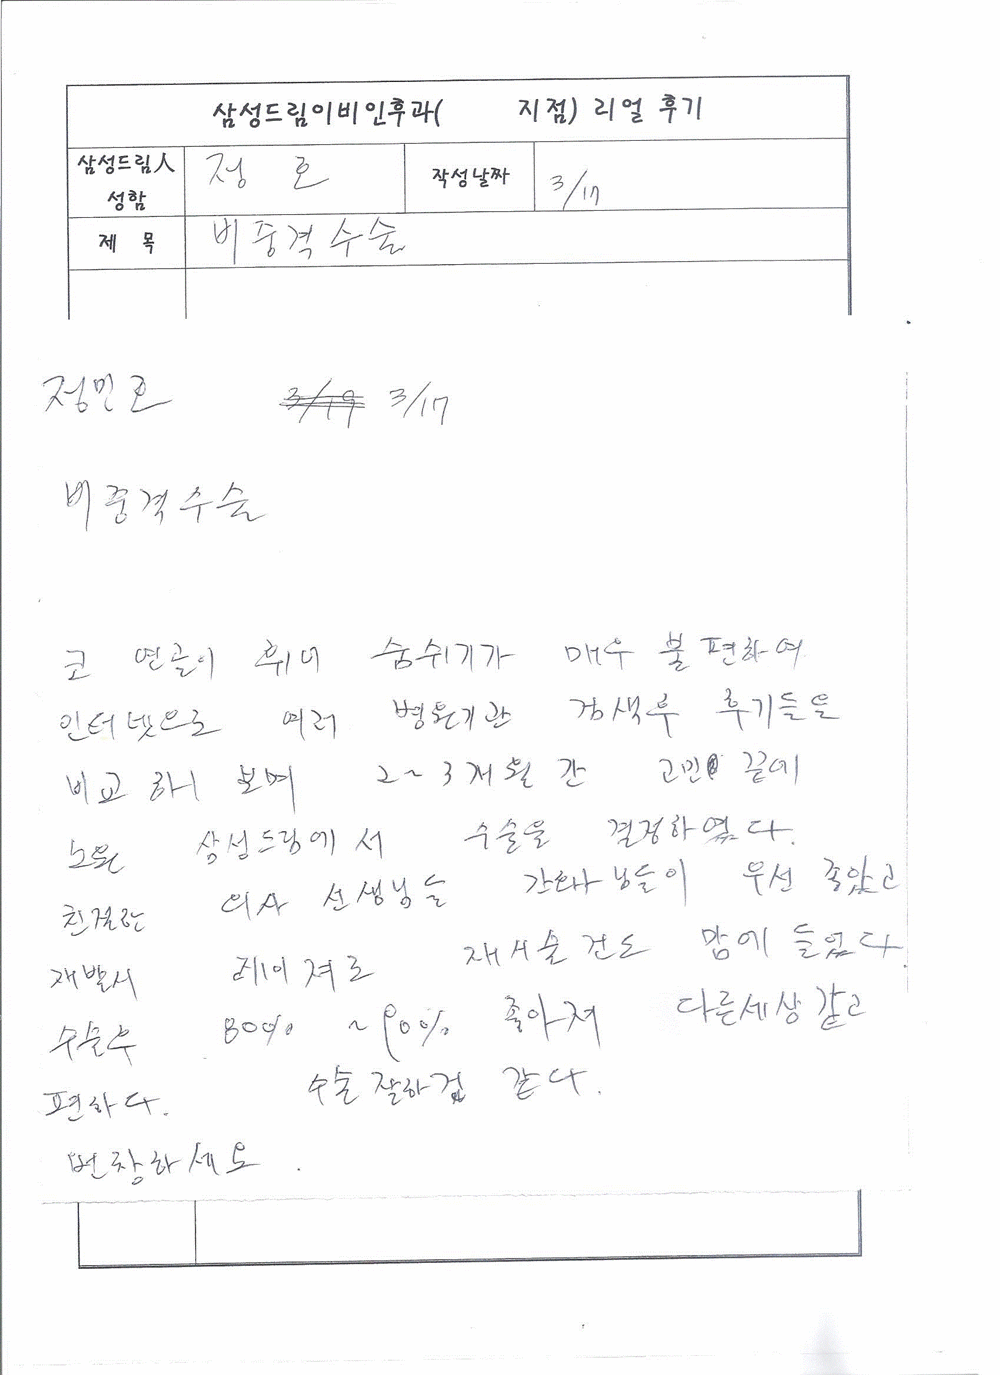 삼성드림이비인후과(      지점) 리얼 후기
삼성드림人 성함 정 호 작성날짜 3/17
제 목 비중격수술
정민호 3/19 3/17
비중격수술
코 연골이 휘어 숨쉬기가 매우 불편하여
인터넷으로 여러 병원기관 검색후 후기들을
비교 하니 보며 2~3개월 간 고민 끝에
노원 삼성드림에서 수술을 결정하였다.
친절한 의사 선생님들 간호사님들이 우선 좋았고
재발시 레이져로 재시술건도 맘에 들었다
수술후 80% ~90% 좋아져 다른세상 같고
편하다. 수술잘하것 같다.
번창하세요.